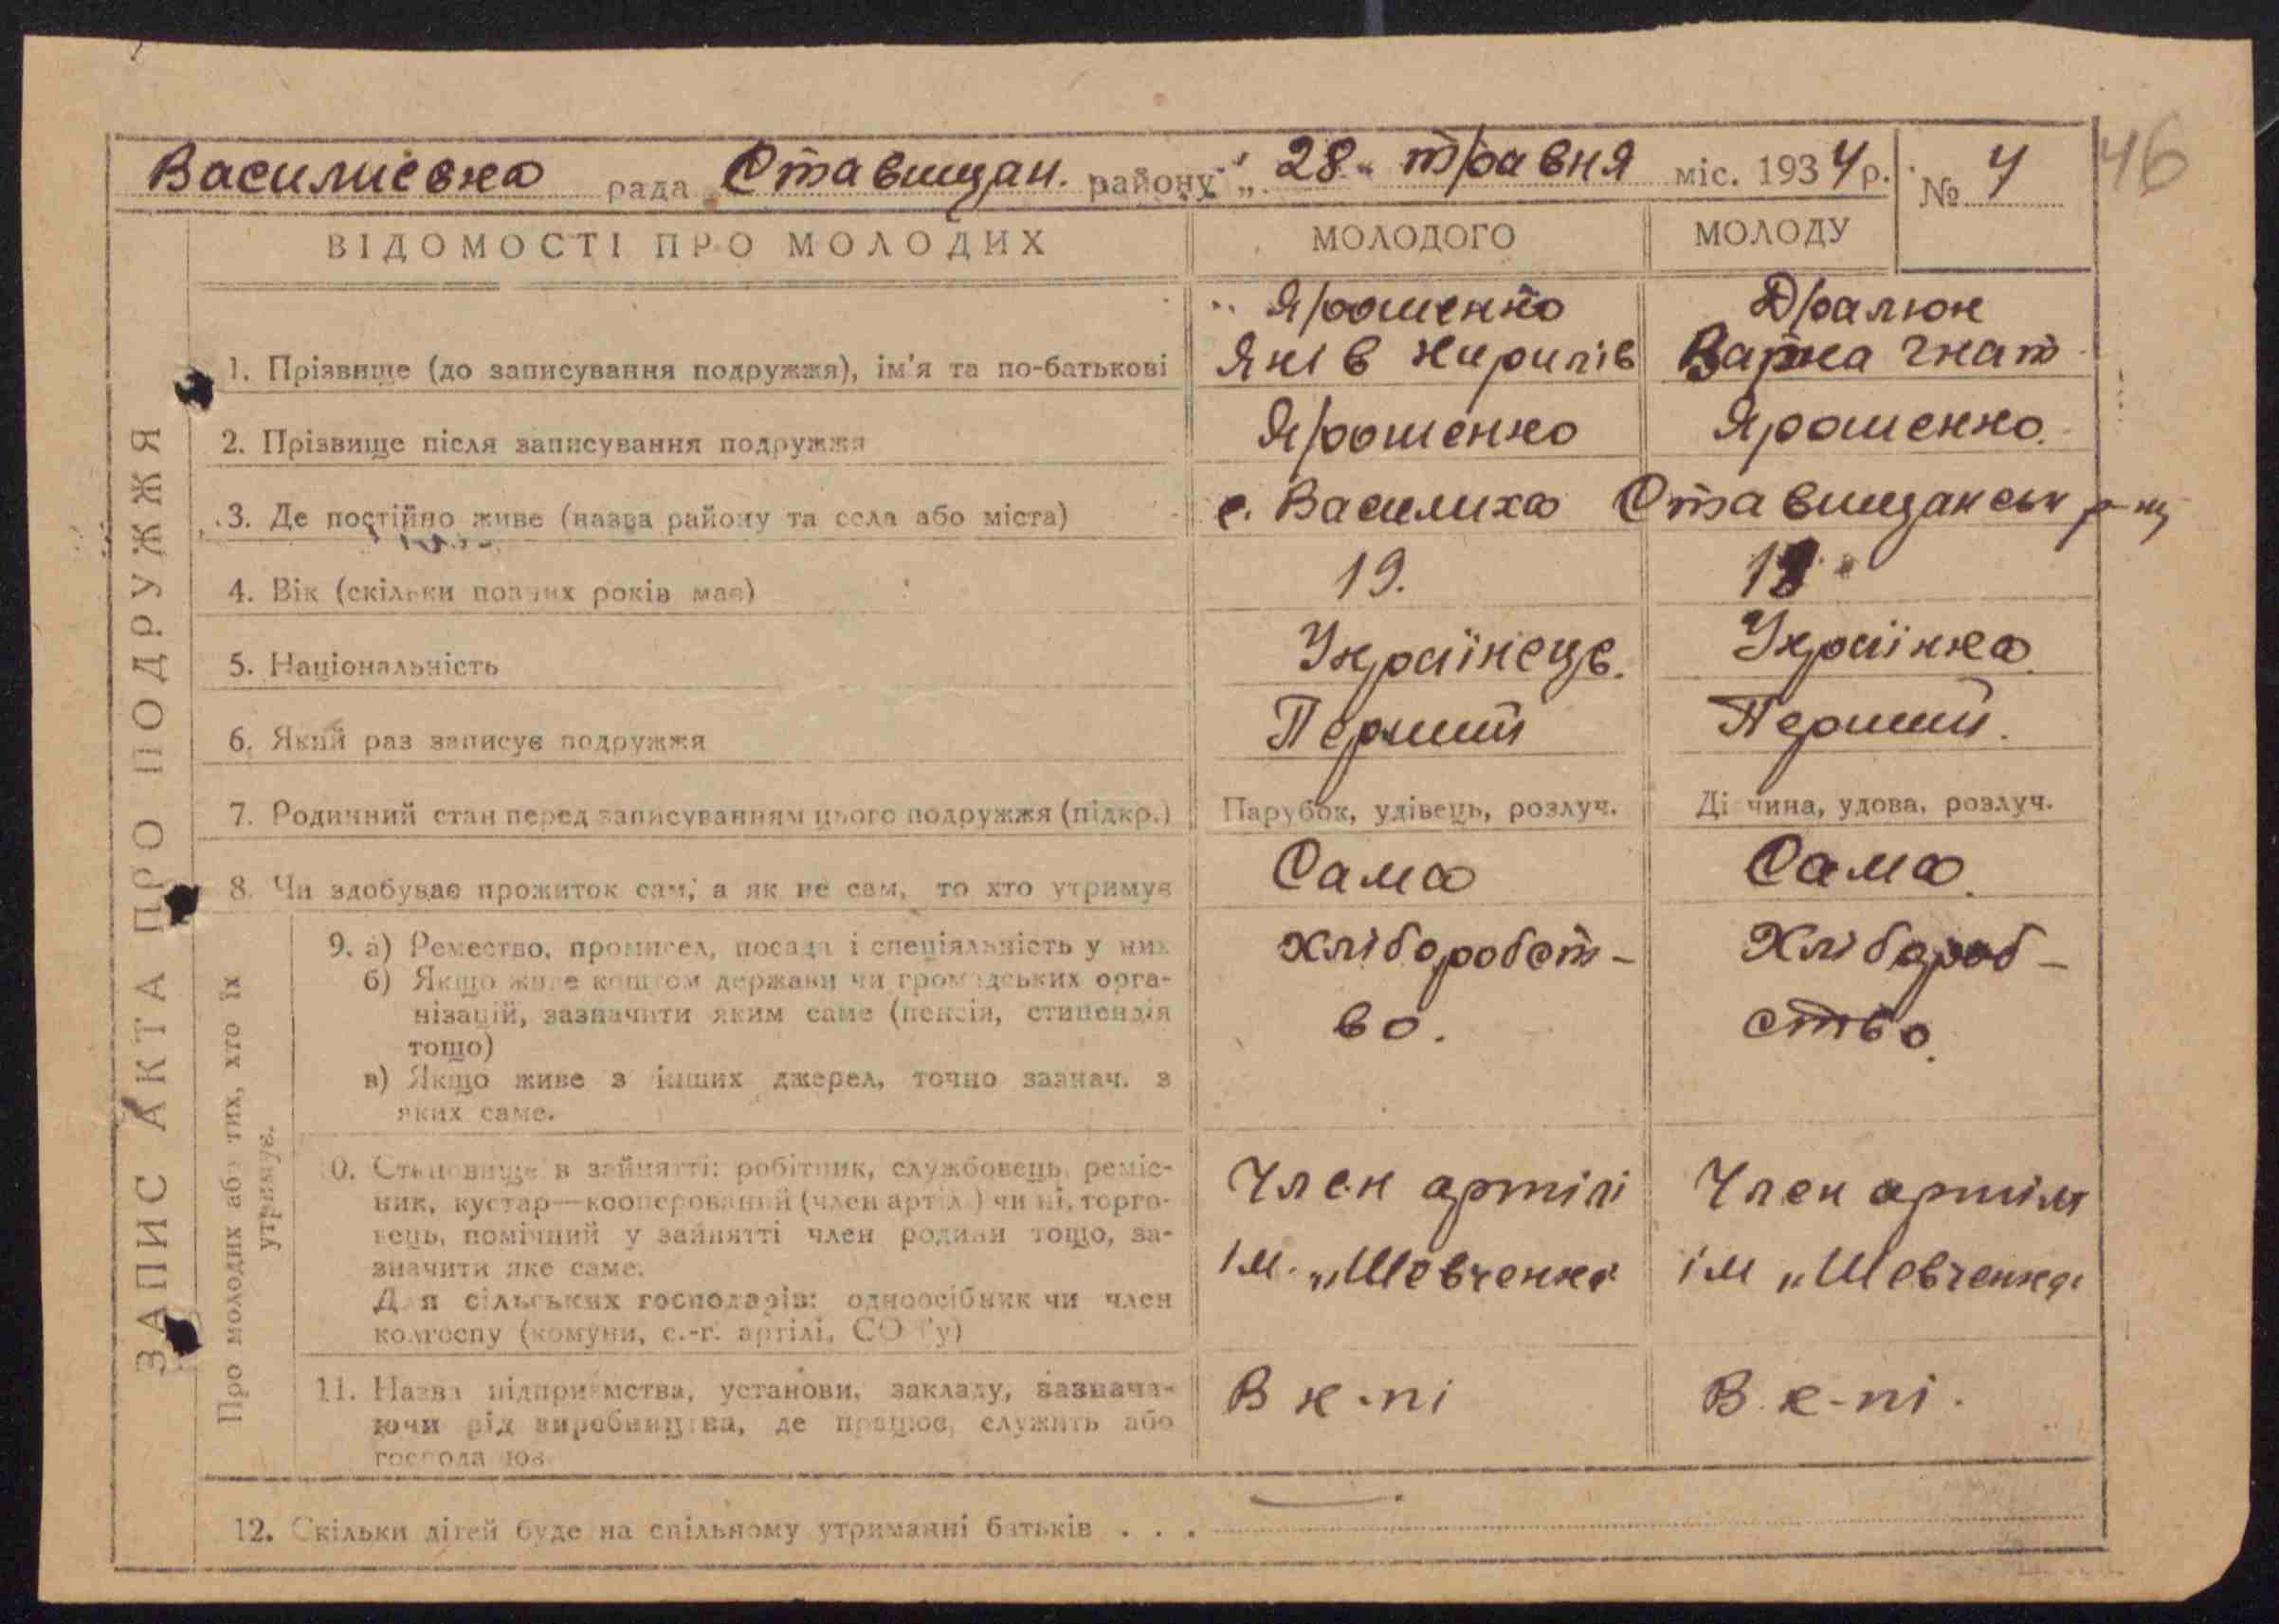 46
Василиєвка рада Ставищан. району „ 28 „ травня міс. 1934 р. № 4
ВІДОМОСТІ ПРО МОЛОДИХ МОЛОДОГО МОЛОДУ
Ярошенко Дралюк
1. Прізвище (до записування подружжя), ім'я та по-батькові Яків Кирилів Варка Гнат
2. Прізвище після записування подружжя Ярошенко Ярошенко.
3. Де постійно живе (назва району та села або міста) с. Василиха Ставищанськ р-ну
4. Вік (скільки повних років має) 19. 18
5. Національність Українець. Українка.
6. Який раз записує подружжя Перший Перший.
7. Родинний стан перед записуванням цього подружжя (підкр.) Парубок, удівець, розлуч. Дівчина, удова, розлуч.
8. Чи здобуває прожиток сам, а як не сам, то хто утримує Сама Сама.
9. а) Ремество, промисел, посада і спеціяльність у них Хліборобст- Хлібороб-
б) Якщо живе коштом держави чи громадських орга-
нізацій, зазначити яким саме (пенсія, стипендія во. ство.
тощо)
в) Якщо живе з інших джерел, точно зазнач. з
яких саме.
10. Становище в зайнятті: робітник, службовець, реміс- Член артілі Член артілі
ник, кустар—кооперований (член артіл.) чи ні, торго-
вець, помічний у зайнятті член родини тощо, за- ім. „Шевченка" ім „Шевченка"
значити яке саме.
Для сільських господарів: одноосібник чи член
колгоспу (комуни, с.-г. артілі, СОЗ'у)
11. Назва підприємства, установи, закладу, зазнача- В к-пі В. к-пі.
ючи рід виробництва, де працює, служить або
господарює
12. Скільки дітей буде на спільному утриманні батьків . . . —
ЗАПИС АКТА ПРО ПОДРУЖЖЯ
Про молодих або тих, хто їх
утримує.